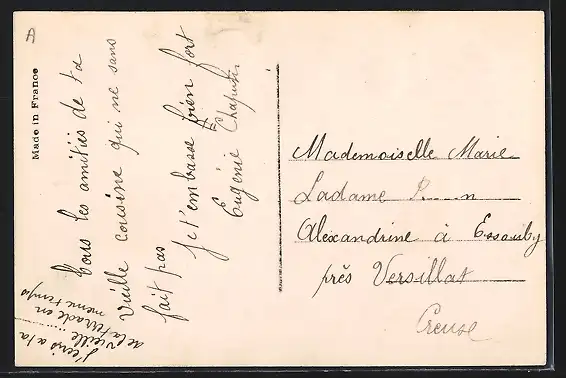 A
Made in France
Tous les amitiés de ta
vieille cousine qui ne sans
fait pas
je t'embasse bien fort
Eugénie
j'ecris a ta
vieille ....
de la en
meme temps
Mademoiselle Marie
Ladame
Alexandrine à
près Versillat
Creuse